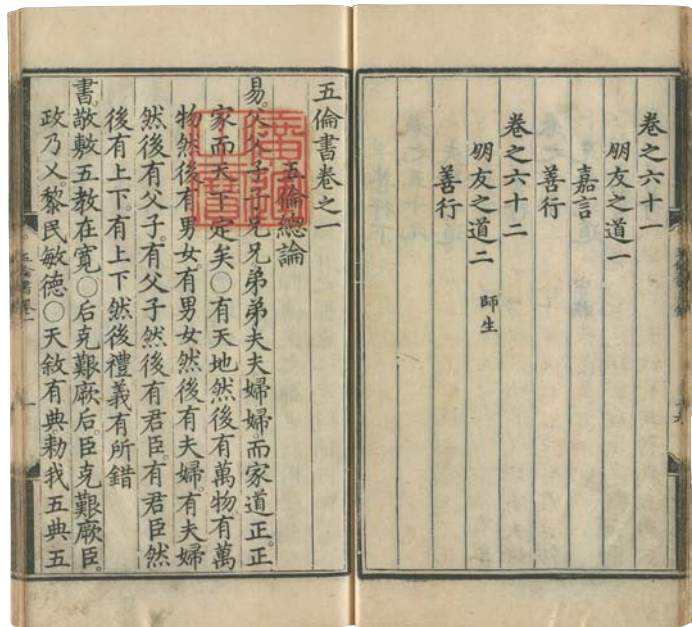 卷之六十一
朋友之道一
嘉言
善行
卷之六十二
朋友之道二 師生
善行
五倫書卷之一
五倫總論
易。父父子子兄兄弟弟夫夫婦婦。而家道正。正
家而天下定矣〇有天地然後有萬物。有萬
物然後有男女。有男女然後有夫婦。有夫婦
然後有父子。有父子然後有君臣。有君臣然
後有上下。有上下然後禮義有所錯
書。敬敷五教在寬〇后克艱厥后。臣克艱厥臣。
政乃乂。黎民敏德〇天敘有典。勑我五典五